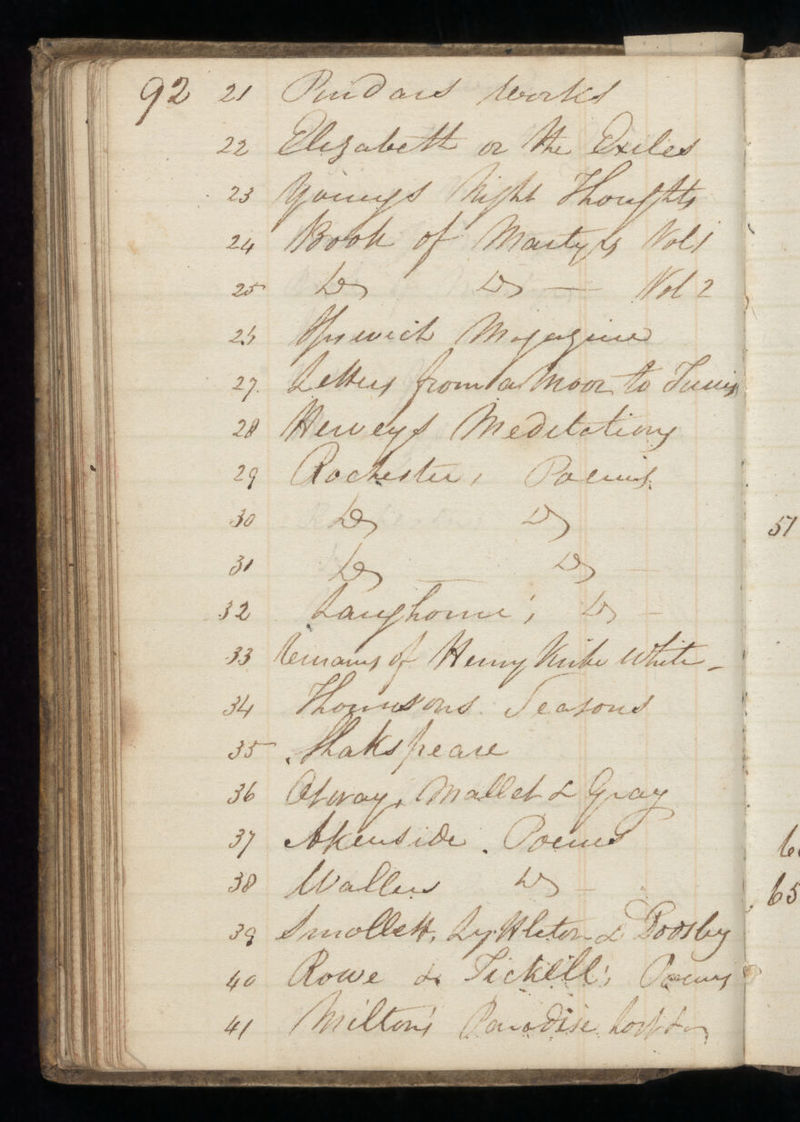 92 21 Pindars Works
22 Elizabeth or the Exiles
23 Youngs Night Thoughts
24 Book of Martyrs Vol 1
25 Do Do — Vol 2
26 Ipswich Magazine
27. Letters from a Moor to Tunis
28 Herveys Meditations
29 Rochester, Poems.
30 Do Do
31 Do Do
32 Langhorne's Do
33 Remains of Henry Kirke White
34 Thomsons Seasons
35 Shakspeare
36 Otway, Mallet & Gray
37 Akenside. Poems
38 Wallers Do
39 Smollett, Lyttleton &
40 Rowe & Tickell's Poems
41 Milton's Paradise Lost
51
65